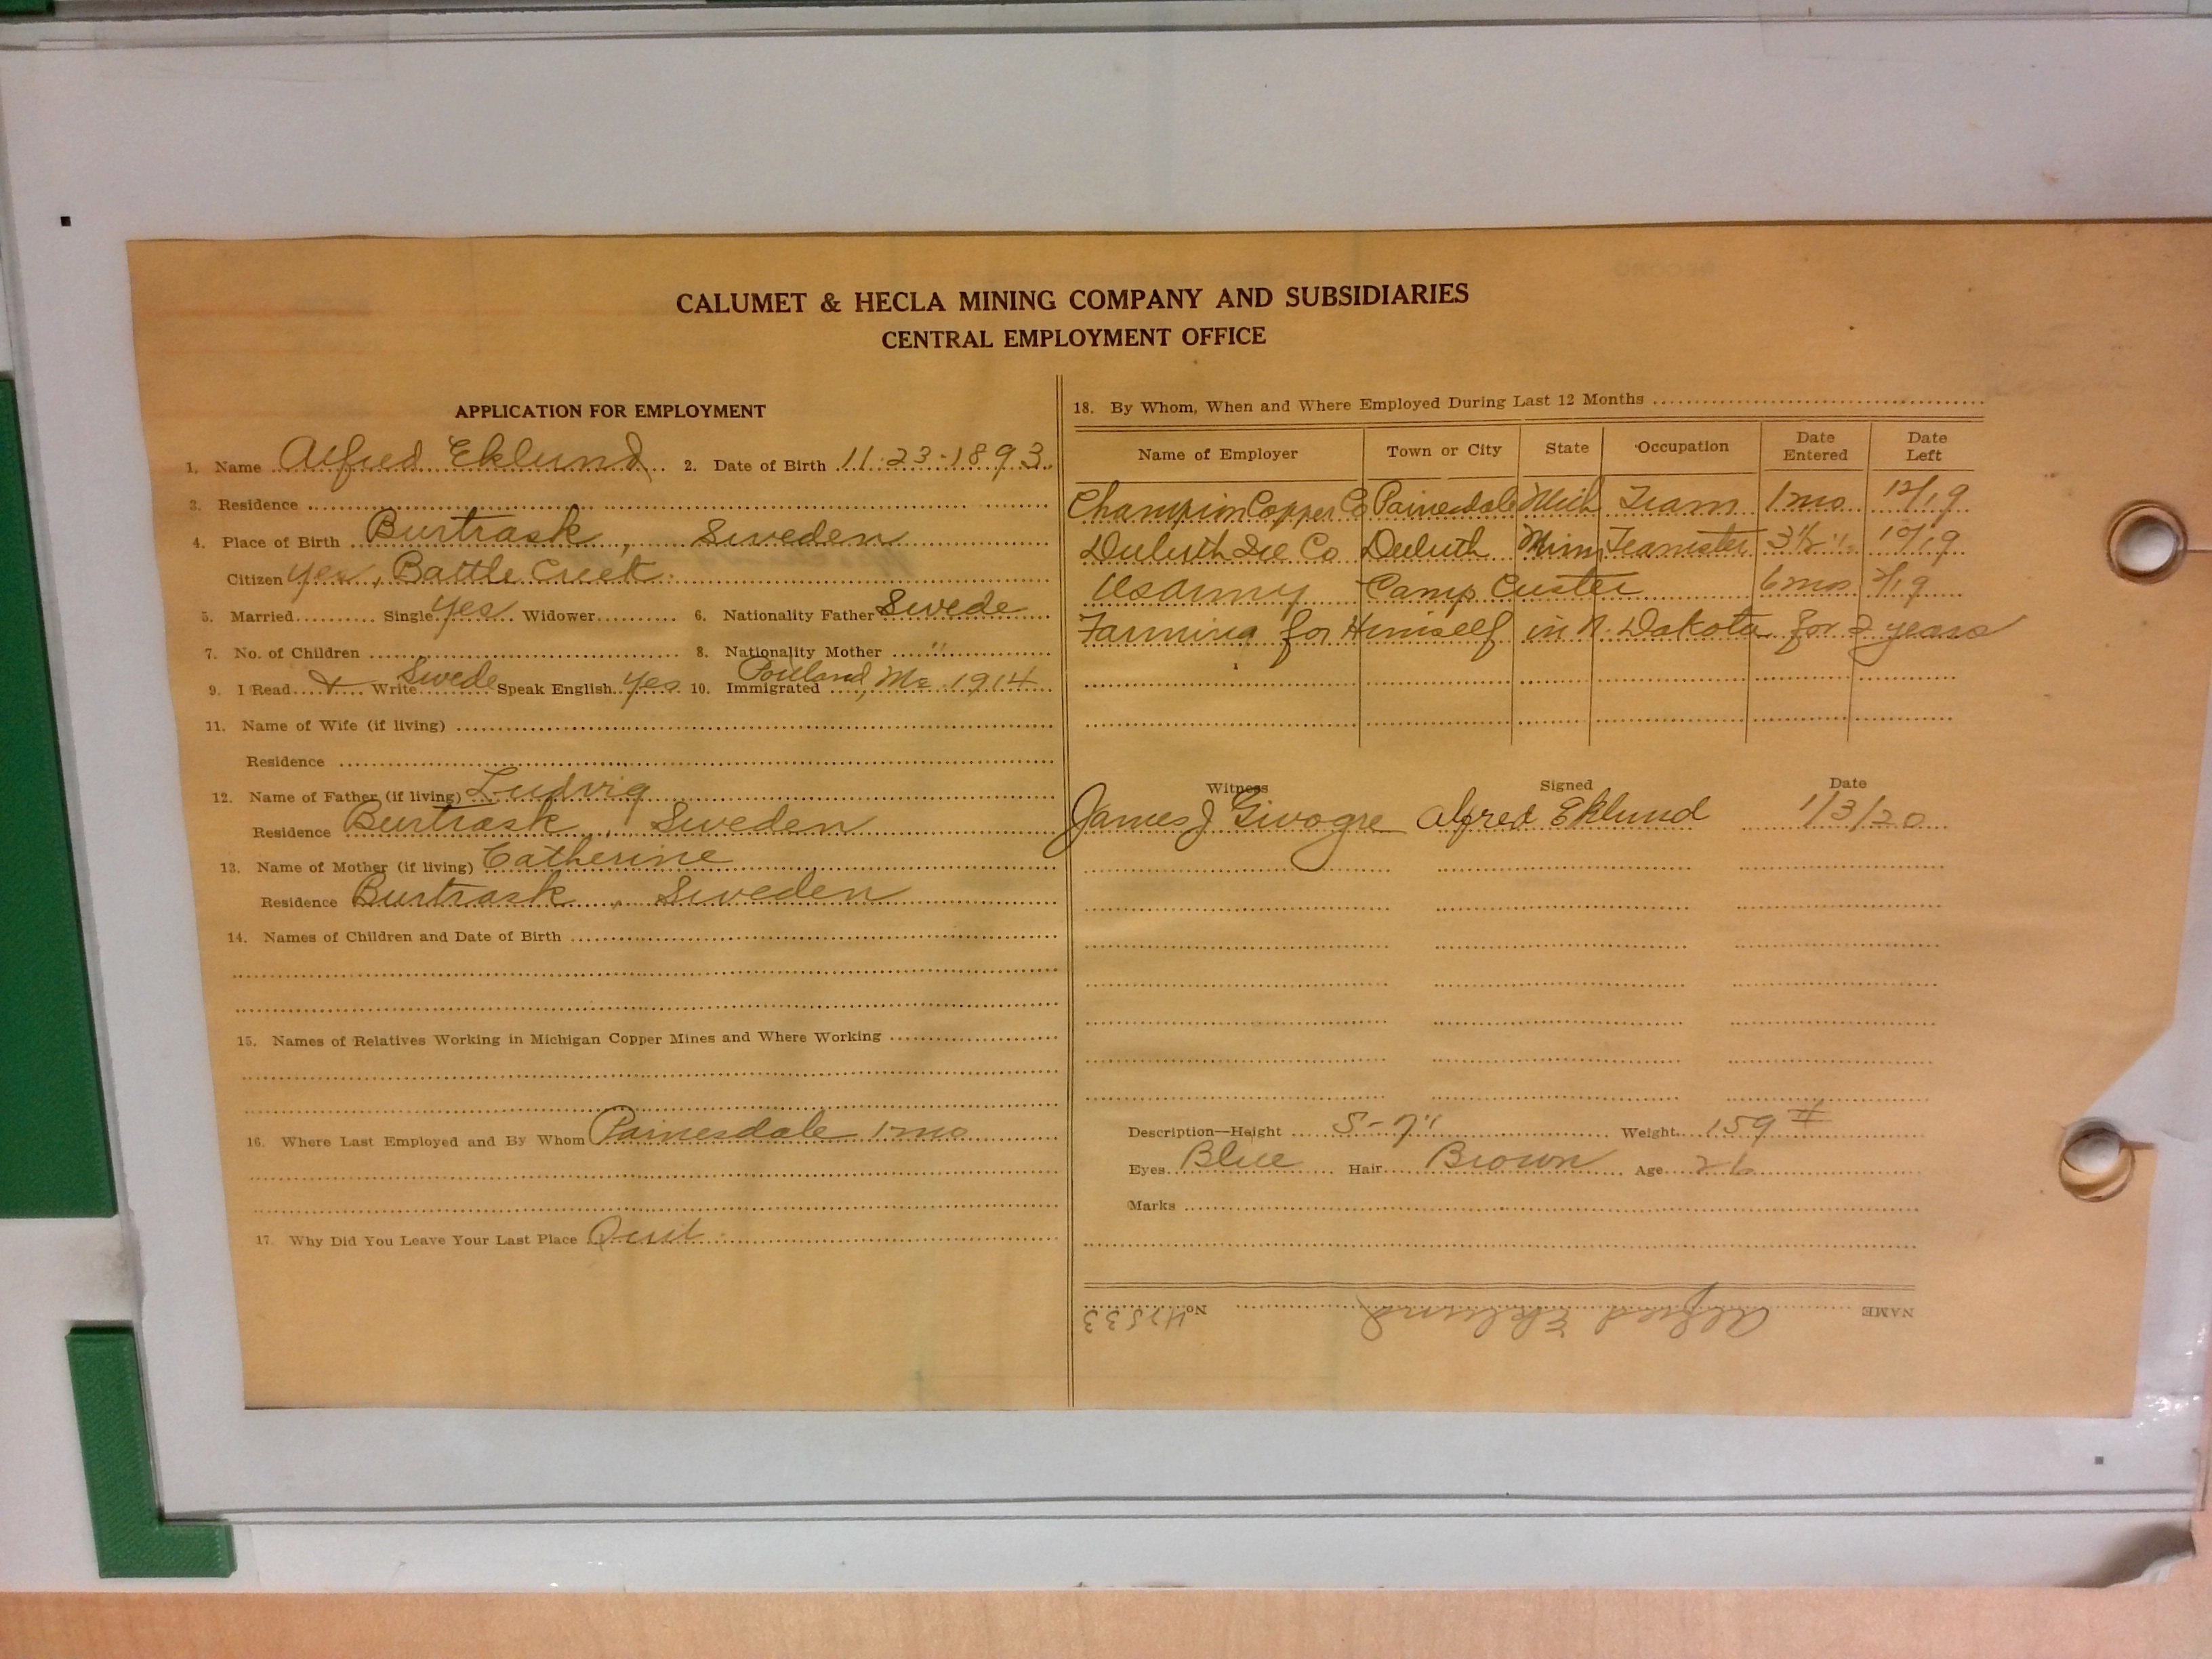 CALUMET & HECLA MINING COMPANY AND SUBSIDIARIES
CENTRAL EMPLOYMENT OFFICE
APPLICATION FOR EMPLOYMENT
1. Name Alfred Eklund 2. Date of Birth 11-23-1893
3. Residence
4. Place of Birth Burtrask, Sweden
Citizen yes, Battle Creek
5. Married Single yes Widower 6. Nationality Father Swede
7. No. of Children 8. Nationality Mother "
9. I Read & Write Swede Speak English yes 10. Immigrated Portland, Me 1914
11. Name of Wife (if living)
Residence
12. Name of Father (if living) Ludvig
Residence Burtrask, Sweden
13. Name of Mother (if living) Catherine
Residence Burtrask, Sweden
14. Names of Children and Date of Birth
15. Names of Relatives Working in Michigan Copper Mines and Where Working
16. Where Last Employed and By Whom Painesdale 1 mo
17. Why Did You Leave Your Last Place Quit
18. By Whom, When and Where Employed During Last 12 Months
Name of Employer Town or City State Occupation Date Entered Date Left
Champion Copper Co Painesdale Mich Team 1 mo 12/19
Duluth Ice Co Duluth Minn Teamster 3½ " 10/19
US Army Camp Custer 6 mos /19
Farming for Himself in N. Dakota for 2 years
Witness Signed Date
James J Givogre Alfred Eklund 1/3/20
Description—Height 5-7" Weight 159#
Eyes Blue Hair Brown Age 26
Marks
NAME Alfred Eklund No. 47533